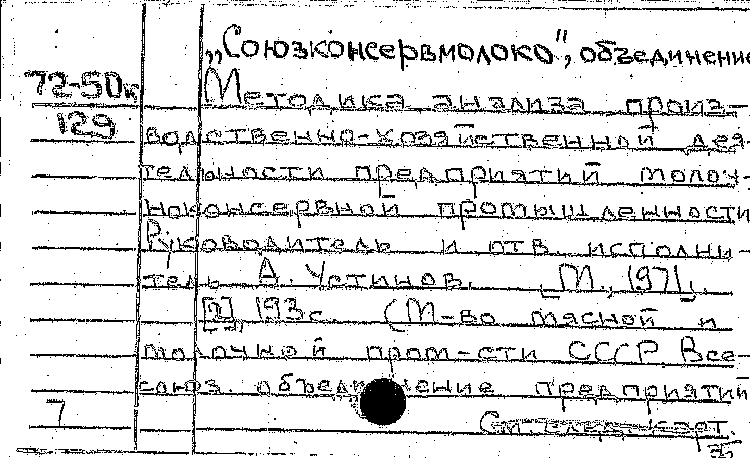 „Союзконсервмолоко", объединение
72-50к
129
Методика анализа произ-
водственно-хозяйственной дея-
тельности предприятий молоч-
ноконсервной промышленности
Руководитель и отв. исполни-
тель А. Устинов. [М., 1971].
[2], 193 с. (М-во мясной и
молочной пром-сти СССР. Все-
союз. объединение предприятий
7
См. след. карт.